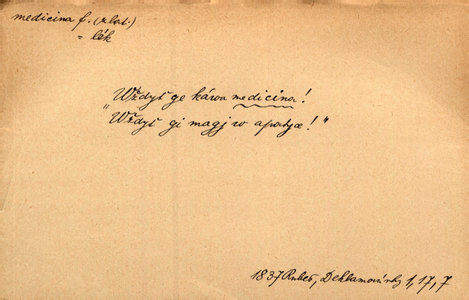 medicina f. (z lat.)
= lék
„Wždyť ge káwa medicina!
Wždyť gi magj w apatyce!"
1837 Rubeš, Deklamovánky 1, 17, 7